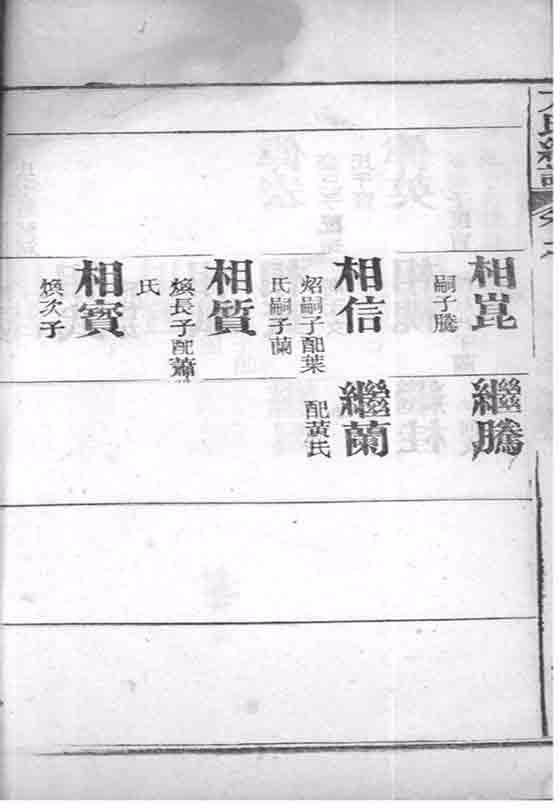 相崑
嗣子騰
繼騰
相信
炤嗣子配葉
氏嗣子蘭
繼蘭
配黃氏
相質
煥長子配蕭
氏
相寳
煥次子